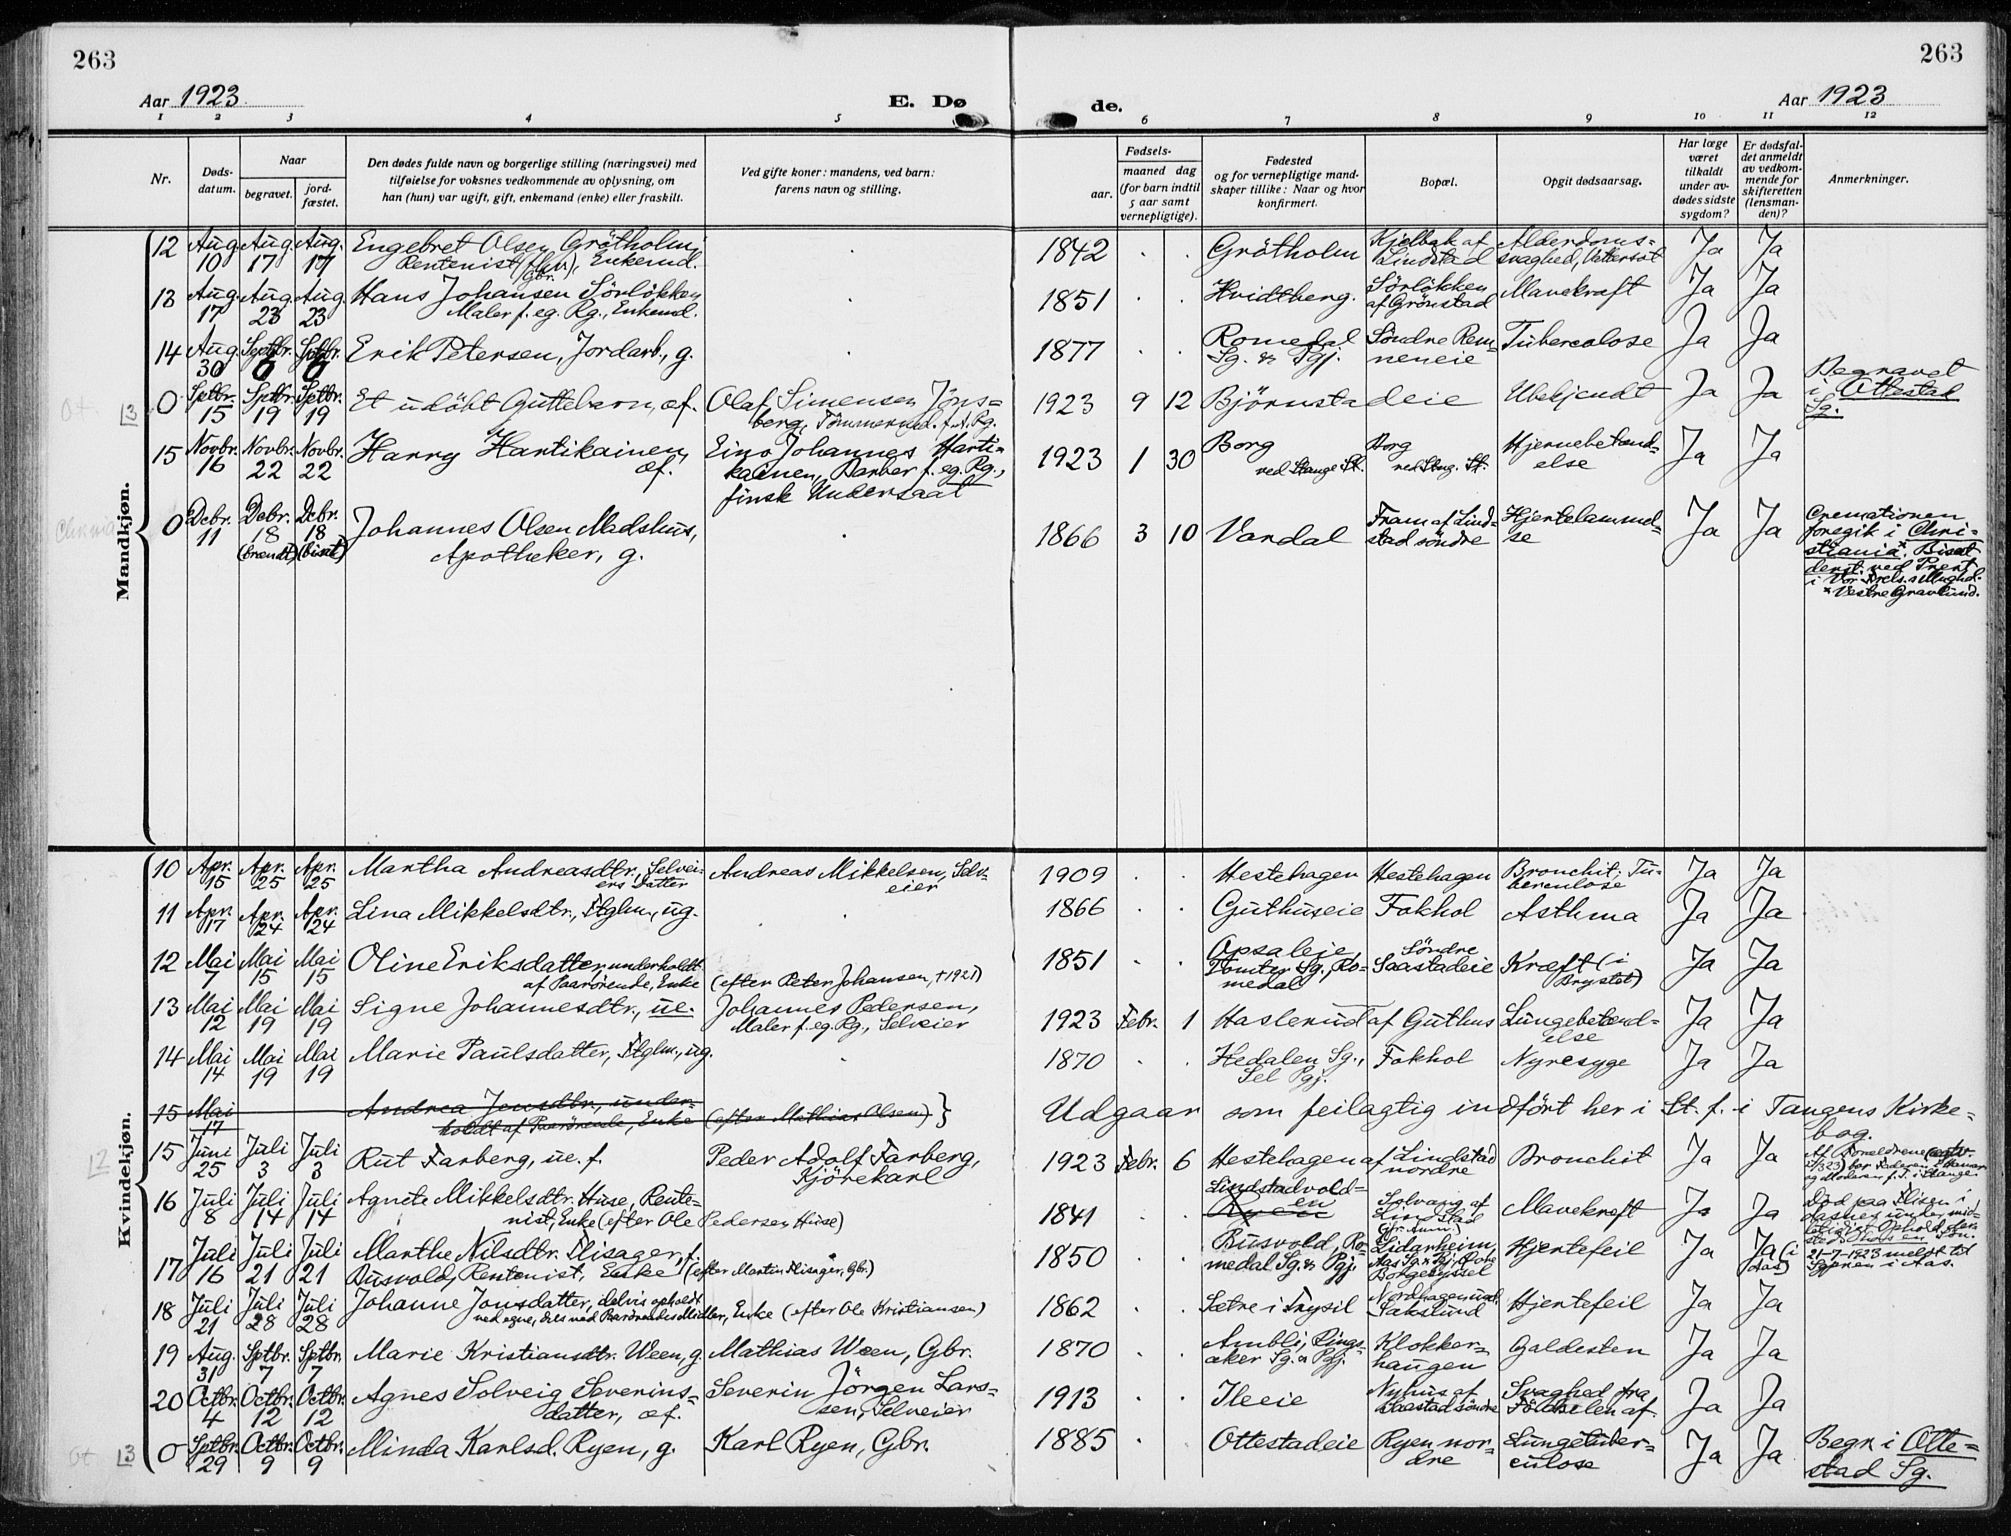 263
263
Aar 1923
E. Dø
de.
Aar 1923
1 2 3 4 5 6 7 8 9 10 11 12
Nr.
Døds-
datum.
Naar
begravet.
jord-
fæstet.
Den dødes fulde navn og borgerlige stilling (næringsvei) med
tilføielse for voksnes vedkommende av oplysning, om
han (hun) var ugift, gift, enkemand (enke) eller fraskilt.
Ved gifte koner: mandens, ved barn:
farens navn og stilling.
Fødsels-
aar.
maaned dag
(for barn indtil
5 aar samt
vernepligtige).
Fødested
og for vernepligtige mand-
skaper tillike: Naar og hvor
konfirmert.
Bopæl.
Opgit dødsaarsag.
Har læge
været
tilkaldt
under av-
dødes sidste
sygdom?
Er dødsfal-
det anmeldt
av vedkom-
mende for
skifteretten
(lensman-
den)?
Anmerkninger.
Mandkjøn.
12 Aug. 10 Aug. 17 Aug. 17 Engebret Olsen Grötholm,
Rentenist (fhv. gbr.), Enkemd.
1842 . . Grötholm Kjelbak af Lindstad Alderdoms-
svaghed, Vattersot Ja Ja
13 Aug. 17 Aug. 23 Aug. 23 Hans Johansen Sörlökken
Maler f. eg. Rg., Enkemd.
1851 . . Hvidtberg. Sörlökken af Grönstad Mavekræft Ja Ja
14 Aug. 30 Septbr. 6 Septbr. 6 Erik Petersen, Jordarb., g.
1877 . . Romedal Sg. & Pgj. Söndre Rem-
neneie Tuberculose Ja Ja
Ot. 3
0 Septbr. 15 Septbr. 19 Septbr. 19 Et udöbt Guttebarn, æf. Olaf Simensen Jöns-
berg, Tömmermd. f. A. Rg.
1923 9 12 Björnstadeie Ubekjendt Ja Ja Begravet
i Ottestad
Sg.
15 Novbr. 16 Novbr. 22 Novbr. 22 Harry Hartikainen, æf. Eino Johannes Harti-
kainen, Barber f. eg. Rg.,
finsk Undersaat
1923 1 30 Borg
ved Stange St. Borg
ved Stng. St. Hjernebetænd-
else Ja Ja
Chr.nia
0 Debr. 11 Debr. 18 (brændt) Debr. 18 (bisat) Johannes Olsen Madshus,
Apotheker, g.
1866 3 10 Vardal Fram af Lind-
stad söndre Hjertelammel-
se Ja Ja Cremationen
foregik i Chri-
stiania*. Bisat
derst. ved Prest
i Vor Frels. Mnghd.
* Vestre Gravlund.
Kvindekjøn.
10 Apr. 15 Apr. 25 Apr. 25 Martha Andreasdtr., Selvei-
ers Datter Andreas Mikkelsen, Selv-
eier
1909 . . Hestehagen Hestehagen Bronchit; Tu-
berculose Ja Ja
11 Apr. 17 Apr. 24 Apr. 24 Lina Mikkelsdtr., Ftglm., ug.
1866 . . Guthuseie Fokhol Asthma Ja Ja
12 Mai 7 Mai 15 Mai 15 Oline Eriksdatter, underholdt
af Paarörende, Enke (efter Peter Johansen, † 1921)
1851 . . Opsaleje,
Tomter Sg., Ro-
medal Söndre
Saastadeie Kræft (i
Brystet) Ja Ja
13 Mai 12 Mai 19 Mai 19 Signe Johannesdtr., ue. Johannes Pedersen,
Maler f. eg. Rg., Selveier
1923 Febr. 1 Haslerud af Guthus Lungebetænd-
else Ja Ja
14 Mai 14 Mai 19 Mai 19 Marie Paulsdatter, Ftglm., ug.
1870 . . Hedalen Sg.,
Sel Pgj. Fokhol Nyresyge Ja Ja
15 Mai 17 Andrea Jensdtr., under-
holdt af Paarörende, Enke (efter Mathias Olsen) }
Udgaar som feilagtig indfört her i St. f. i Tangens Kirke-
bog.
12
15 Juni 25 Juli 3 Juli 3 Rut Farberg, ue. f. Peder Adolf Farberg,
Kjörekarl
1923 Febr. 6 Hestehagen af Lindstad
nordre Bronchit Ja Ja Af Foreldrene
bor Faderen i Hamar
og Moderen f. T. i Stange
16 Juli 8 Juli 14 Juli 14 Agnete Mikkelsdtr. Huse, Rente-
nist, Enke (efter Ole Pedersen Huse)
1841 . . Lindstadvold-
en Solvang af
Lindstad Mavekreft Ja Ja
17 Juli 16 Juli 21 Juli 21 Marthe Nilsdtr. Flisager, f.
Busvold, Rentenist, Enke (efter Martin Flisager, Gbr.)
1850 . . Busvold, Ro-
medal Sg. & Pgj. Lidarheim,
Aas Sg. & Pgj.
Borgesyssel Hjertefeil Ja Ja (i
Aas)
21-7-1923 meldt til
Sgpren i Aas.
18 Juli 21 Juli 28 Juli 28 Johanne Jonsdatter, delvis opholdt
ved egne, dels ved Paarörendes Midler, Enke (efter Ole Kristiansen)
1862 . . Sætre i Trysil Nordhagen und.
Saxlund Hjertefeil Ja Ja
19 Aug. 31 Sptbr. 7 Sptbr. 7 Marie Kristiansdtr. Ween, g. Mathias Ween, Gbr.
1870 . . Ambli, Rings-
aker Sg. & Pgj. Klokker-
haugen Galdesten Ja Ja
20 Octbr. 4 Octbr. 12 Octbr. 12 Agnes Solveig Severins-
datter, æf. Severin Jörgen Lars-
sen, Selveier
1913 . . Ileeie Nyhus af
Saastad söndre Svaghed fra
Födselen af. Ja Ja
Ot 3
0 Sptbr. 29 Octbr. 9 Octbr. 9 Minda Karlsd. Ryen, g. Karl Ryen, Gbr.
1885 . . Ottestadeie Ryen nor-
dre Lungetuber-
culose Ja Ja Begr. i Otte-
stad Sg.